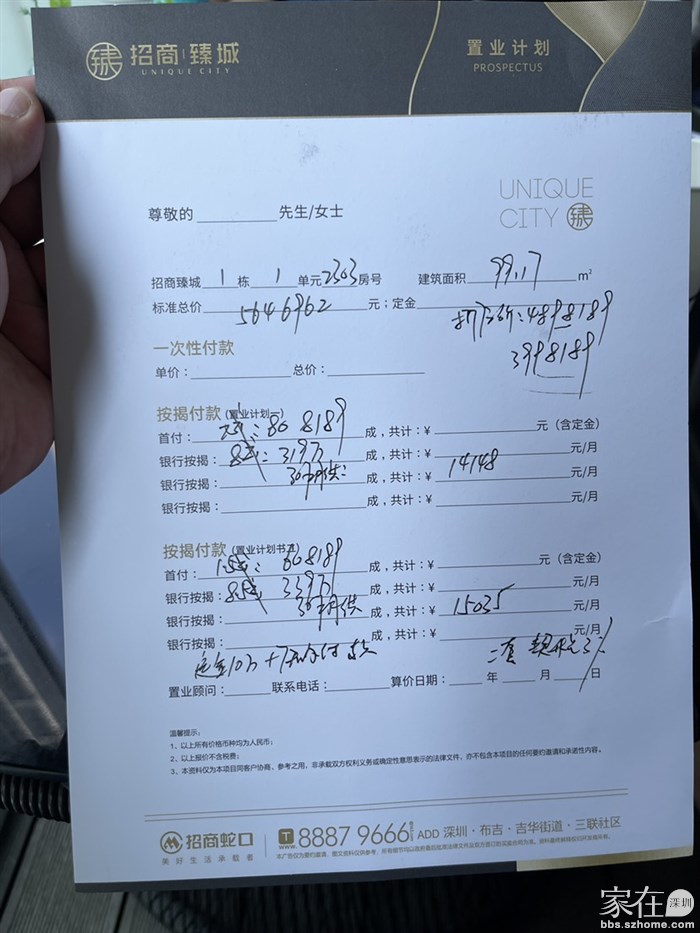 臻 招商 臻城
UNIQUE CITY
置业计划
PROSPECTUS
UNIQUE
CITY 臻
尊敬的 先生/女士
招商臻城 1 栋 1 单元 2303 房号 建筑面积 99.17 m²
标准总价 5646962 元；定金
折后价：4898189
3998189
一次性付款
单价： 总价：
按揭付款 (置业计划一)
首付： 2成：808189 成，共计：¥ 元（含定金）
银行按揭： 8成：319万 成，共计：¥ 元/月
银行按揭： 30年月供： 成，共计：¥ 14148 元/月
银行按揭： 成，共计：¥ 元/月
按揭付款 (置业计划书二)
首付： 1.5成： 608189 成，共计：¥ 元（含定金）
银行按揭： 8.5成 339万 成，共计：¥ 元/月
银行按揭： 30年月供 成，共计：¥ 15035 元/月
银行按揭： 成，共计：¥ 元/月
定金10万 +7天内付款 二套 契税3%
置业顾问： 联系电话： 算价日期： 年 月 日
温馨提示：
1、以上所有价格币种均为人民币；
2、以上报价不含税费；
3、本资料仅为本项目同客户协商，参考之用，非承载双方权利义务或确定性意思表示的法律文件，亦不包含本项目的任何要约邀请和承诺性内容。
招商蛇口
美好生活承载者
T 8887 9666 ADD 深圳·布吉·吉华街道·三联社区
家在深圳
bbs.szhome.com